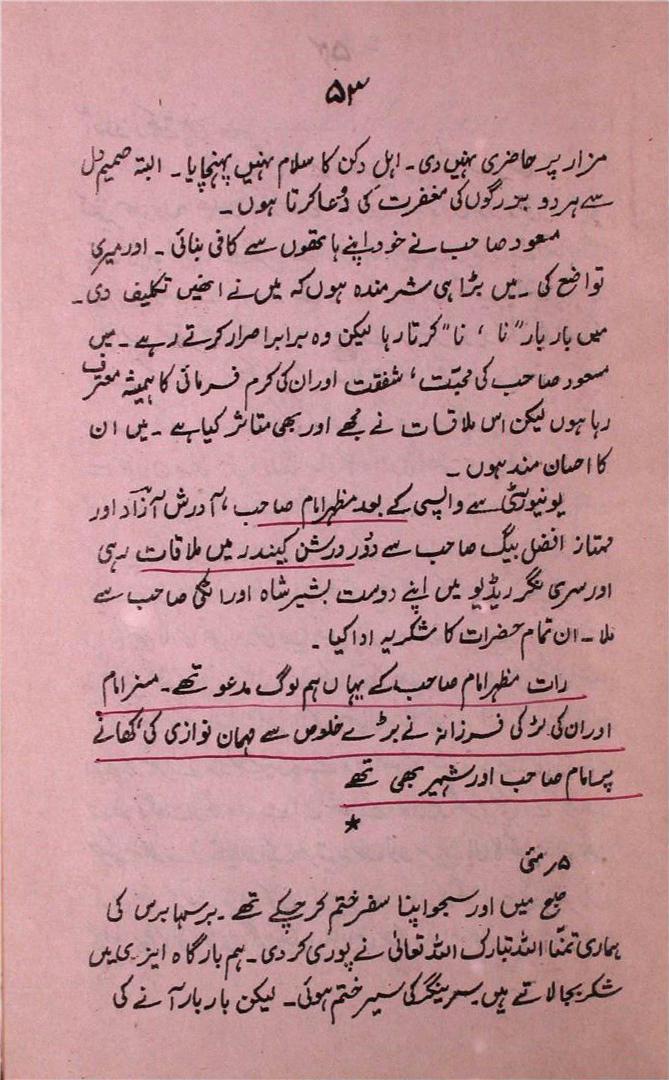 ۵۳
مزار پر حاضری نہیں دی۔ اہلِ دکن کا سلام نہیں پہنچایا۔ البتہ صمیمِ دل
سے ہر دو بزرگوں کی مغفرت کی دُعا کرتا ہوں۔
مسعود صاحب نے خود اپنے ہاتھوں سے کافی بنائی۔ اور میری
تواضع کی۔ میں بڑا ہی شرمندہ ہوں کہ میں نے انھیں تکلیف دی۔
میں بار بار "نا، نا" کرتا رہا لیکن وہ برابر اصرار کرتے رہے۔ میں
مسعود صاحب کی محبّت، شفقت اور ان کی کرم فرمائی کا ہمیشہ معترف
رہا ہوں لیکن اس ملاقات نے مجھے اور بھی متاثر کیا ہے۔ میں ان
کا احسان مند ہوں۔
یونیورسٹی سے واپسی کے بعد مظہر امام صاحب، آدرش آزاد اور
ممتاز افضل بیگ صاحب سے دُور درشن کیندر میں ملاقات رہی
اور سری نگر ریڈیو میں اپنے دوست بشیر شاہ اور صاحب سے
ملا۔ ان تمام حضرات کا شکریہ ادا کیا۔
رات مظہر امام صاحب کے یہاں ہم لوگ مدعو تھے۔ مسز امام
اور ان کی لڑکی فرزانہ نے بڑے خلوص سے مہمان نوازی کی، کھانے
پر امام صاحب اور شہپر بھی تھے
*
۵ر مئی
صبح میں اور سجو اپنا سفر ختم کر چکے تھے۔ برسہا برس کی
ہماری تمنّا اللہ تبارک اللہ تعالیٰ نے پوری کر دی۔ ہم بارگاہ ایزدی میں
شکر بجا لاتے ہیں سرینگر کی سیر ختم ہوئی۔ لیکن بار بار آنے کی